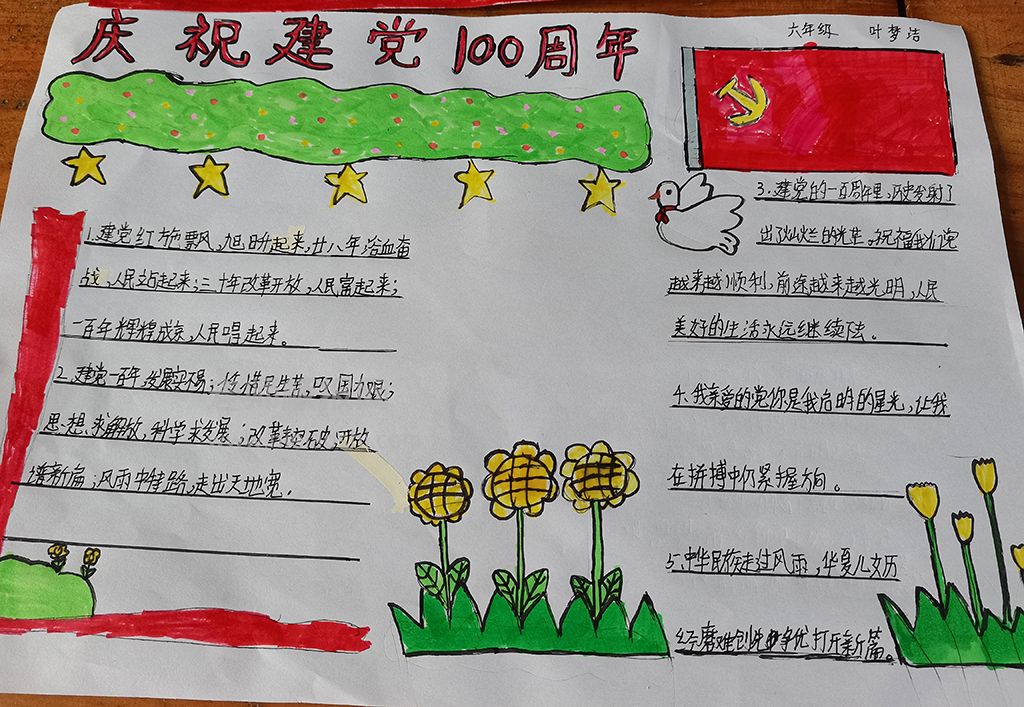 庆祝建党100周年
六年级 叶梦洁
1.建党红旗飘,旭日升起来,廿八年浴血奋
战,人民站起来;三十年改革开放,人民富起来;
一百年辉煌成京,人民唱起来。
2.建党一百年发展实不易;惜民生苦,叹国力艰;
思想求解放,科学求发展;改革 历史,开放
谱新篇;风雨中 路,走出天地宽.
3.建党的一百周年里,历史发射了
出了灿烂的光芒。祝福我们党
越来越顺利,前途越来越光明,人民
美好的生活永远继续 。
4、我亲爱的党你是我启明的星光,让我
在拼搏中仍紧握方向。
5、中华民族走过风雨,华夏儿女历
经磨难创先争优打开新篇。